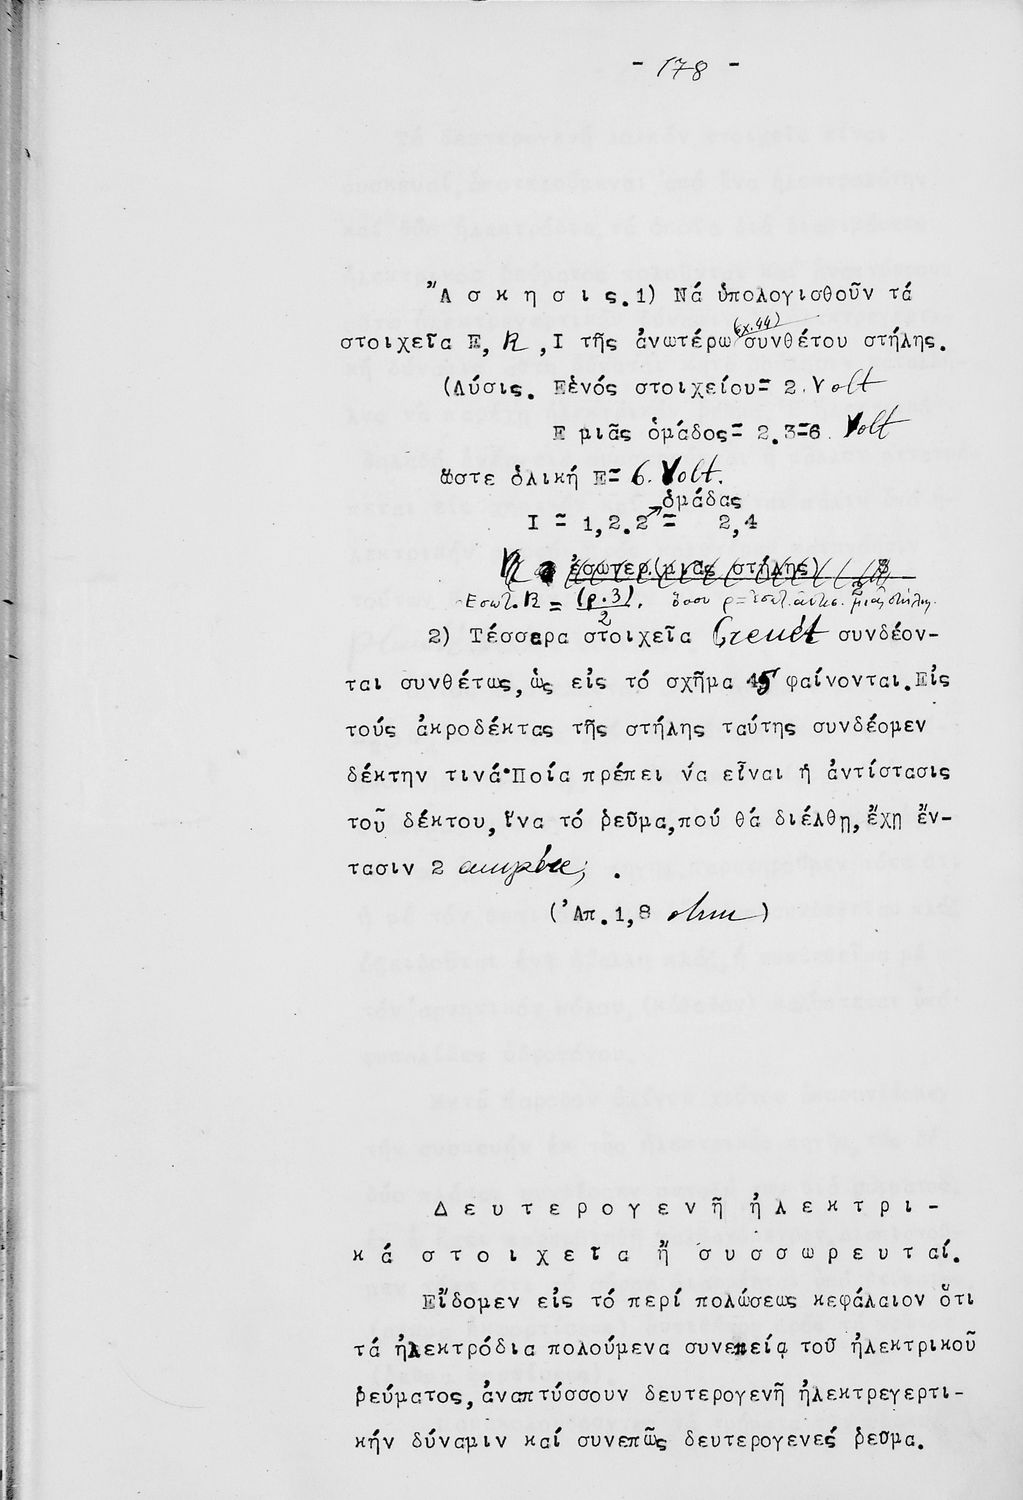 - 178 -
Ἄ σ κ η σ ι ς. 1) Νά ὑπολογισθοῦν τά
(σχ. 44)
στοιχεῖα Ε, R, Ι τῆς ἀνωτέρω συνθέτου στήλης.
(Λύσις. Ε ἑνός στοιχείου = 2. Volt
Ε μιᾶς ὁμάδος = 2.3=6. Volt
ὥστε ὁλική Ε = 6. Volt.
ὁμάδας
Ι = 1,2.2 = 2,4
ἐσωτερ.(μιᾶς στήλης) 3
Εσωτ. R = (ρ.3)/2. ὅπου ρ = ἐσωτ. ἀντισ. μιᾶς στήλης.
2) Τέσσερα στοιχεῖα Grenét συνδέον-
ται συνθέτως, ὡς εἰς τό σχῆμα 45 φαίνονται. Εἰς
τούς ἀκροδέκτας τῆς στήλης ταύτης συνδέομεν
δέκτην τινά· Ποία πρέπει νά εἶναι ἡ ἀντίστασις
τοῦ δέκτου, ἵνα τό ῥεῦμα, πού θά διέλθῃ, ἔχῃ ἔν-
τασιν 2 ampère; .
(Ἀπ. 1,8 ohm)
Δ ε υ τ ε ρ ο γ ε ν ῆ ἠ λ ε κ τ ρ ι -
κ ά σ τ ο ι χ ε ῖ α ἤ σ υ σ σ ω ρ ε υ τ α ί.
Εἴδομεν εἰς τό περί πολώσεως κεφάλαιον ὅτι
τά ἠλεκτρόδια πολούμενα συνεπείᾳ τοῦ ἠλεκτρικοῦ
ῥεύματος, ἀναπτύσσουν δευτερογενῆ ἠλεκτρεγερτι-
κήν δύναμιν καί συνεπῶς δευτερογενές ῥεῦμα.